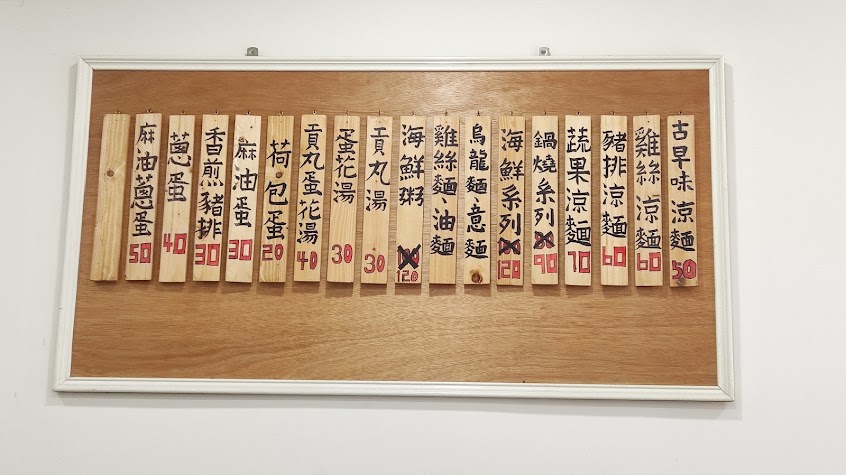 古早味涼麵 50
雞絲涼麵 60
豬排涼麵 60
蔬果涼麵 70
鍋燒系列 90
海鮮系列 120
烏龍麵、意麵
雞絲麵、油麵
海鮮粥 120
貢丸湯 30
蛋花湯 30
貢丸蛋花湯 40
荷包蛋 20
麻油蛋 30
香煎豬排 30
蔥蛋 40
麻油蔥蛋 50